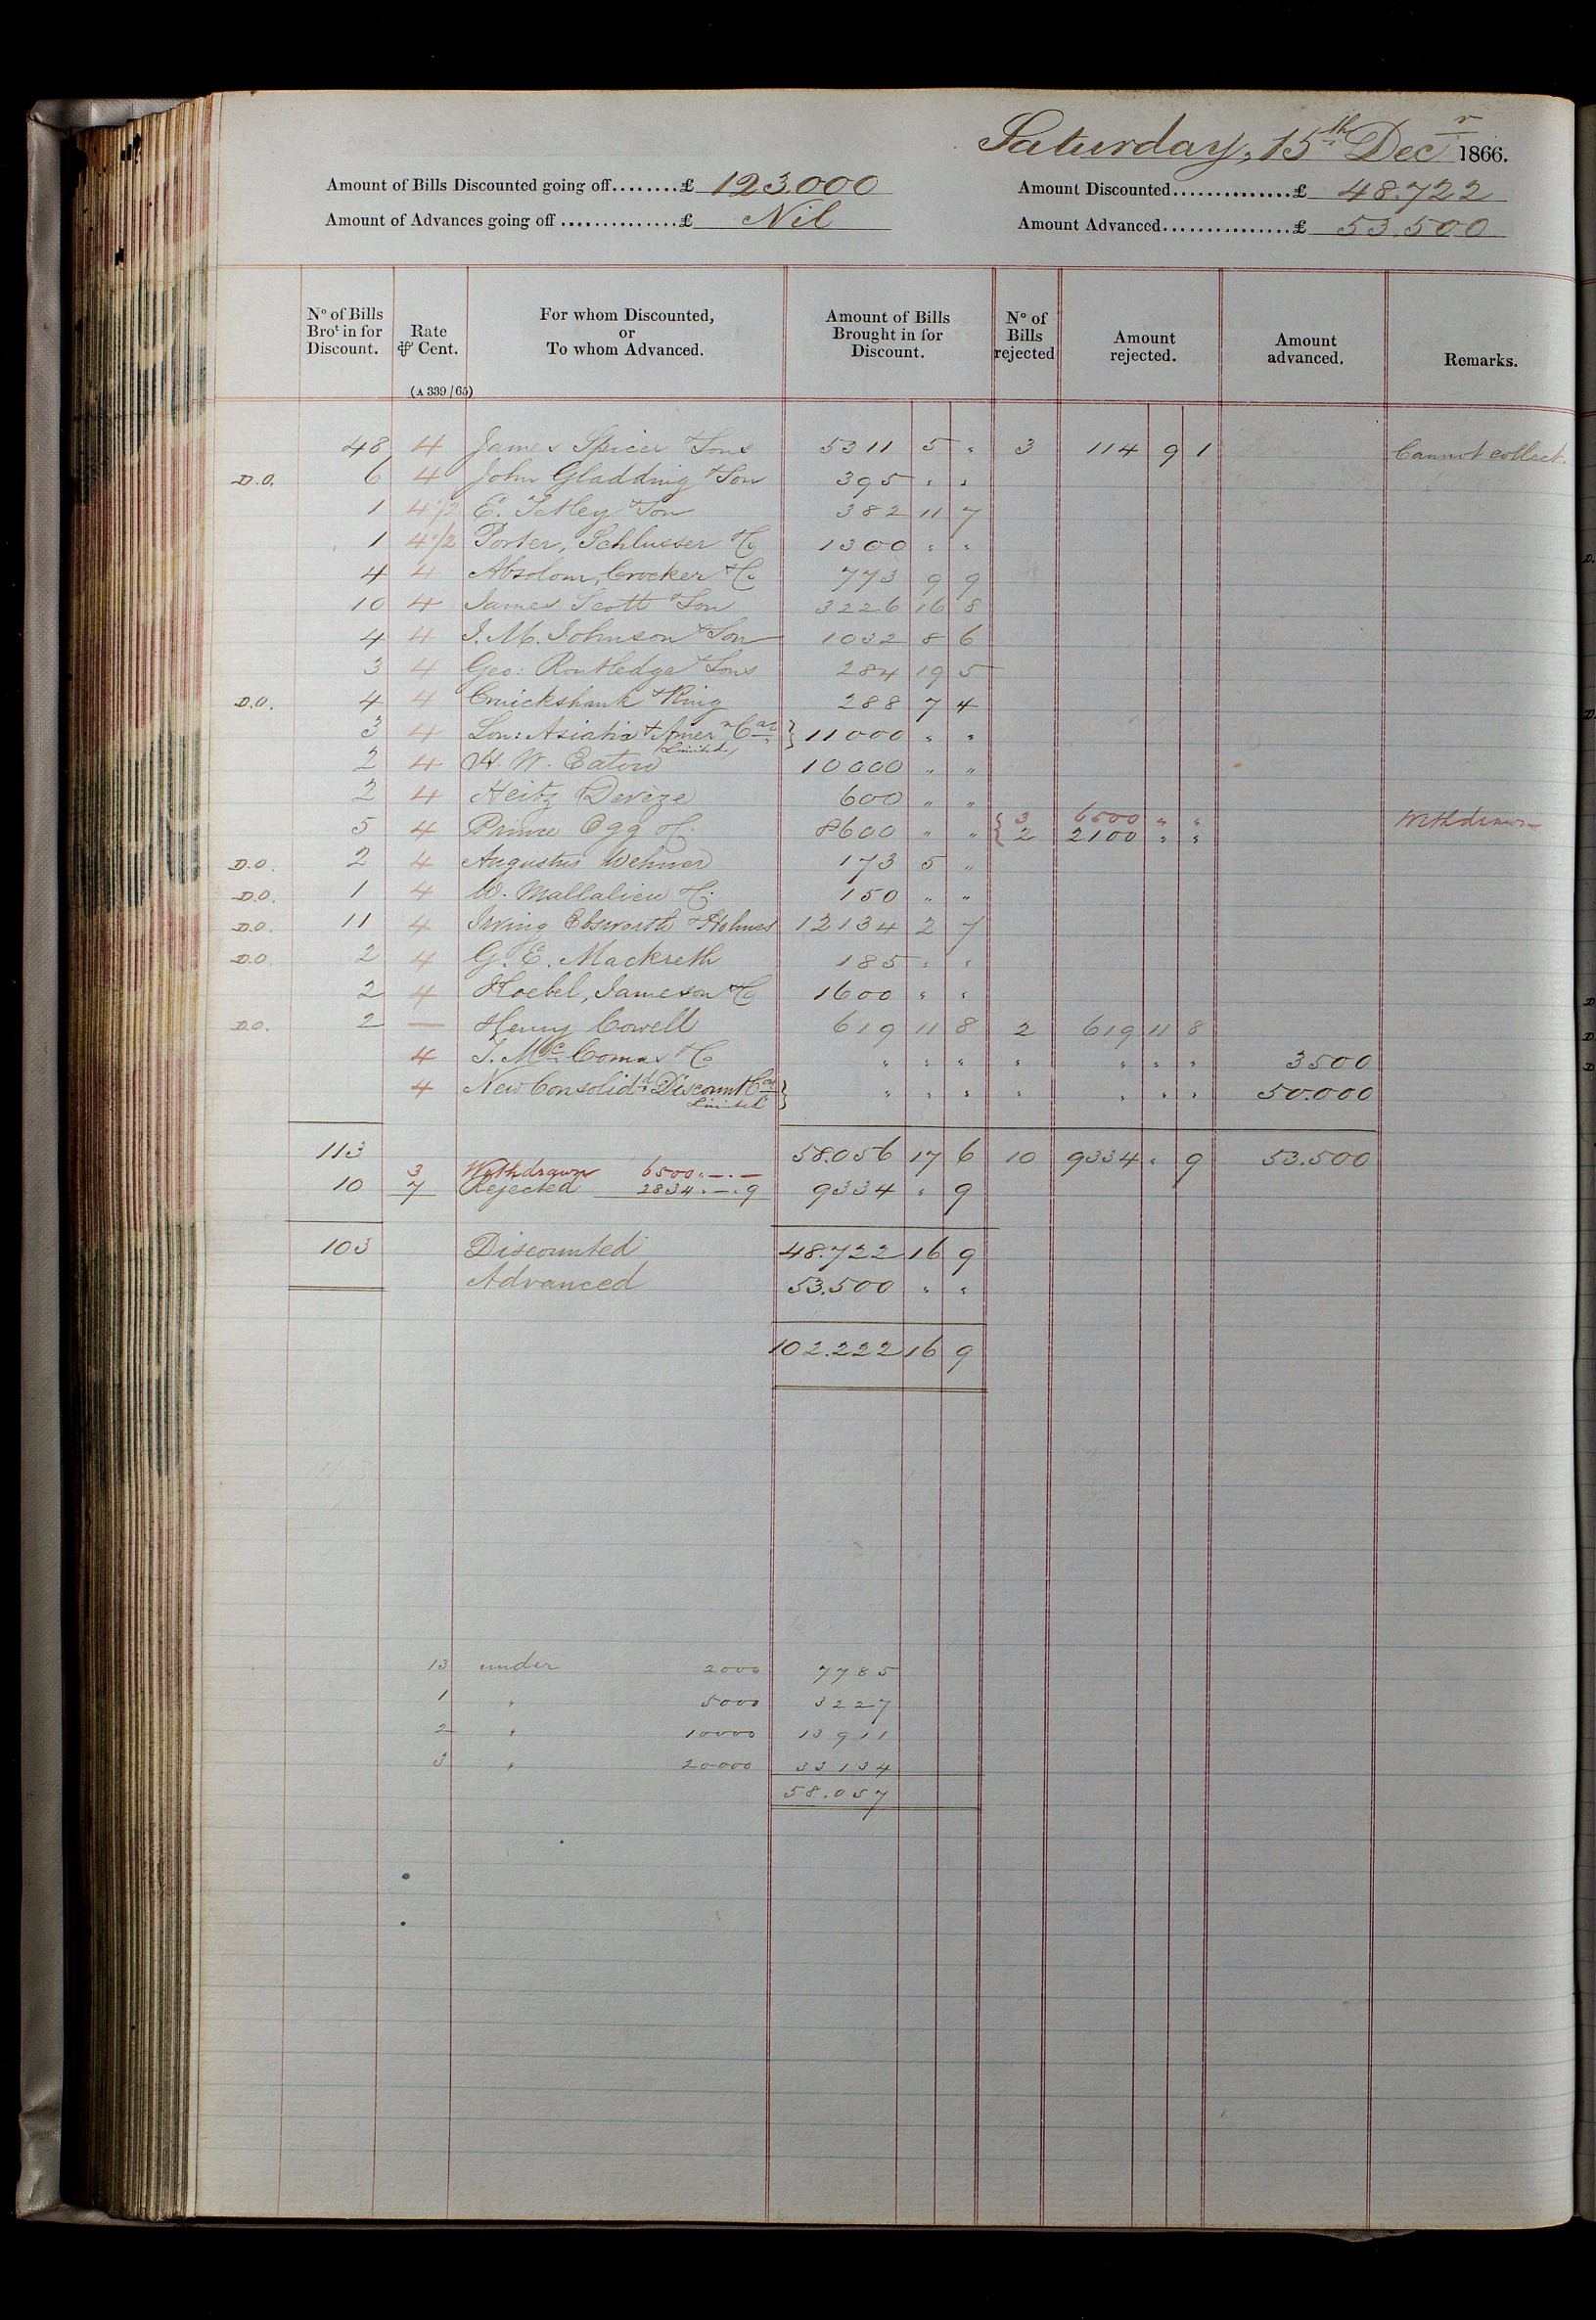 Saturday, 15th Decr 1866.
Amount of Bills Discounted going off........£ 123.000 Amount Discounted..............£ 48.722
Amount of Advances going off..............£ Nil Amount Advanced...............£ 53.500
No of Bills Brot in for Discount. Rate ⅌ Cent. For whom Discounted, or To whom Advanced. Amount of Bills Brought in for Discount. No of Bills rejected Amount rejected. Amount advanced. Remarks.
(A 339/65)
48 4 James Spicer & Sons 5311 5 " 3 114 9 1 Cannot collect.
D.O. 6 4 John Gladding & Son 395 " "
1 4 1/2 E. Tetley & Son 382 11 7
1 4 1/2 Porter, Schlusser & Co 1300 " "
4 4 Absolom, Crocker & Co 773 9 9
10 4 James Scott & Son 3226 16 8
4 4 J. M. Johnson & Son 1032 8 6
3 4 Geo: Routledge & Sons 284 19 5
D.O. 4 4 Cruickshank & King 288 7 4
3 4 Lon: Asiatic & Amern Co Limited } 11000 " "
2 4 W. W. Eaton 10000 " "
2 4 Heitz Devèze 600 " "
5 4 Prince Ogg & Co 8600 " " { 3 6500 " " Withdrawn
{ 2 2100 " "
D.O. 2 4 Augustus Wehner 173 5 "
D.O. 1 4 W. Mallalieu & Co. 150 " "
D.O. 11 4 Irving Ebsworth & Holmes 12134 2 7
D.O. 2 4 G. E. Mackreth 185 " "
2 4 Hoebel, Jameson & Co 1600 " "
D.O. 2 — Henry Cowell 619 11 8 2 619 11 8
4 J. Mc Comas & Co " " " " " " " 3500
4 New Consolidd Discount Con Limited } " " " " " " " 50.000
113 58.056 17 6 10 9334 " 9 53.500
3 Withdrawn 6500.—.—
10 7 Rejected 2834.—.9 9334 " 9
103 Discounted 48.722 16 9
Advanced 53.500 " "
102.222 16 9
13 under 2000 7785
1 " 5000 3227
2 " 10000 13911
3 " 20000 33134
58.057